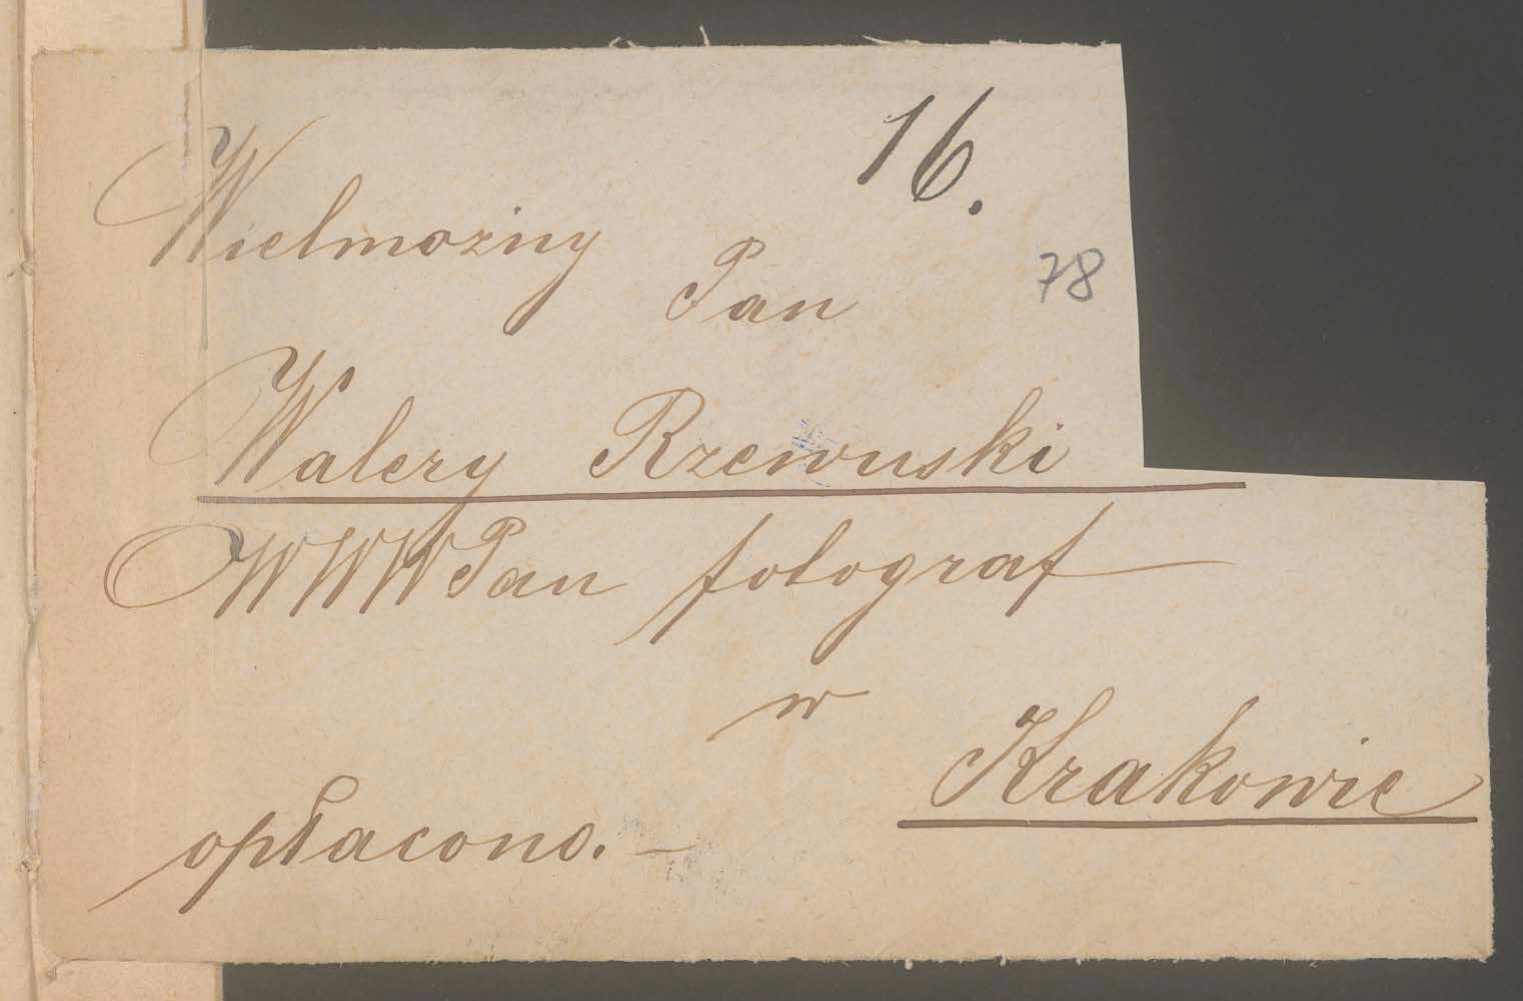 16.
Wielmożny
Pan
78
Walery Rzewuski
WWWPan fotograf
w
Krakowie
opłacono. —